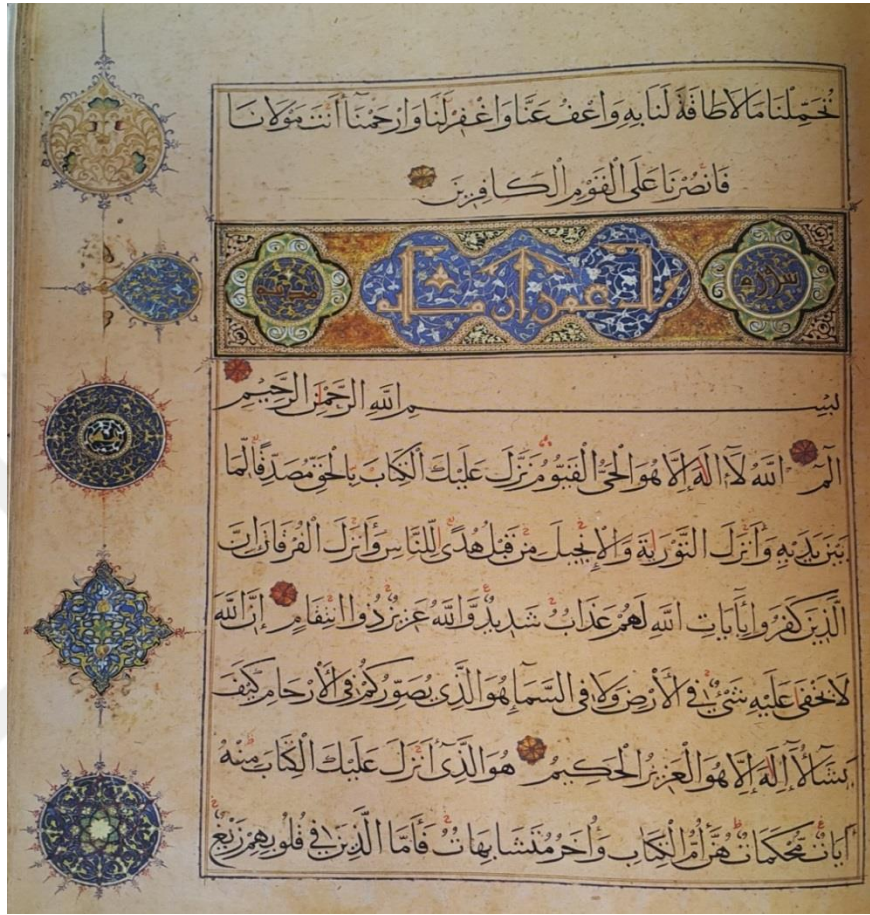 تُحَمِّلْنَا مَا لَا طَاقَةَ لَنَا بِهِ وَاعْفُ عَنَّا وَاغْفِرْ لَنَا وَارْحَمْنَا أَنْتَ مَوْلَانَا
فَانْصُرْنَا عَلَى الْقَوْمِ الْكَافِرِينَ
سورة مدنية
بِسْمِ اللَّهِ الرَّحْمٰنِ الرَّحِيمِ
الٓمٓ اللَّهُ لَآ إِلٰهَ إِلَّا هُوَ الْحَيُّ الْقَيُّومُ نَزَّلَ عَلَيْكَ الْكِتَابَ بِالْحَقِّ مُصَدِّقًا لِّمَا
بَيْنَ يَدَيْهِ وَأَنْزَلَ التَّوْرٰيةَ وَالْإِنْجِيلَ مِنْ قَبْلُ هُدًى لِّلنَّاسِ وَأَنْزَلَ الْفُرْقَانَ إِنَّ
الَّذِينَ كَفَرُوا بِآيَاتِ اللَّهِ لَهُمْ عَذَابٌ شَدِيدٌ وَّاللَّهُ عَزِيزٌ ذُو انْتِقَامٍ إِنَّ اللَّهَ
لَا يَخْفَى عَلَيْهِ شَيْءٌ فِي الْأَرْضِ وَلَا فِي السَّمَآءِ هُوَ الَّذِي يُصَوِّرُكُمْ فِي الْأَرْحَامِ كَيْفَ
يَشَآءُ لَآ إِلٰهَ إِلَّا هُوَ الْعَزِيزُ الْحَكِيمُ هُوَ الَّذِيٓ أَنْزَلَ عَلَيْكَ الْكِتَابَ مِنْهُ
آيَاتٌ مُّحْكَمَاتٌ هُنَّ أُمُّ الْكِتَابِ وَأُخَرُ مُتَشَابِهَاتٌ فَأَمَّا الَّذِينَ فِي قُلُوبِهِمْ زَيْغٌ